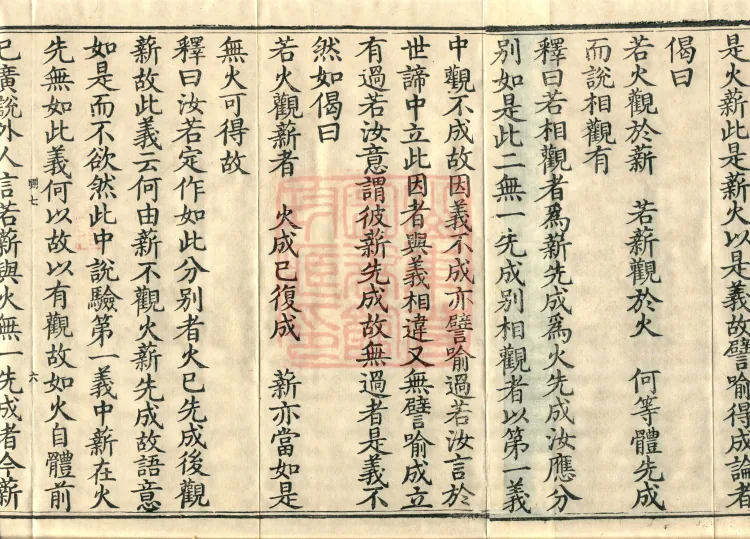 是火薪此是薪火以是義故譬喻得成論者
偈曰
若火觀於薪　若薪觀於火　何等體先成
而說相觀有
釋曰若相觀者為薪先成為火先成汝應分
別如是此二無一先成別相觀者以第一義
中觀不成故因義不成亦譬喻過若汝言於
世諦中立此因者與義相違又無譬喻成立
有過若汝意謂彼薪先成故無過者是義不
然如偈曰
若火觀薪者　火成已復成　薪亦當如是
無火可得故
釋曰汝若定作如此分別者火已先成後觀
薪故此義云何由薪不觀火薪先成故語意
如是而不欲然此中說驗第一義中薪在火
先無如此義何以故以有觀故如火自體前
六
已廣說外人言若薪與火無一先成者今薪